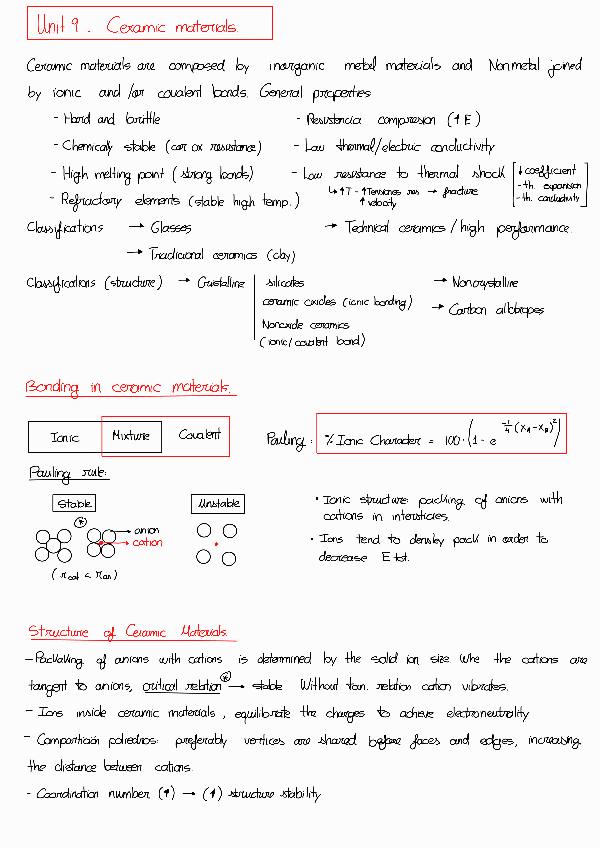 Unit 9. Ceramic materials.
Ceramic materials are composed by inorganic metal materials and Nonmetal joined
by ionic and/or covalent bonds. General properties
- Hard and brittle - Resistencia compression (↑E)
- Chemically stable (cor ox resistance) - Low thermal/electric conductivity
- High melting point (strong bonds) - Low resistance to thermal shock [↓ coefficient
↳ ↑T - ↑Tensiones res → fracture - th. expansion
↑ velocity - th. conductivity]
- Refractory elements (stable high temp.)
Classifications → Glasses → Technical ceramics / high performance.
→ Tradicional ceramics (clay)
Classifications (structure) → Cristalline silicates → Noncrystalline
ceramic oxides (ionic bonding) → Carbon allotropes
Nonoxide ceramics
(ionic/covalent bond)
Bonding in ceramic materials.
Ionic Mixture Covalent Pauling: % Ionic Character = 100·(1 - e^(-1/4 (XA-XB)^2))
Pauling rule:
Stable Unstable
(*) anion
cation
(rcat < ran)
• Ionic structure: packing of anions with
cations in intersticies.
• Ions tend to densley pack in order to
decrease E tot.
Structure of Ceramic Materials.
- Packaking of anions with cations is determined by the solid ion size. Whe the cations are
tangent to anions, critical relation (*) → stable Without tan. relation cation vibrates.
- Ions inside ceramic materials, equilibrate the charges to achieve electroneutrality
- Compartición poliedros: preferably vertices are shared before faces and edges, increasing
the distance between cations.
- Coordination number (↑) → (↑) structure stability